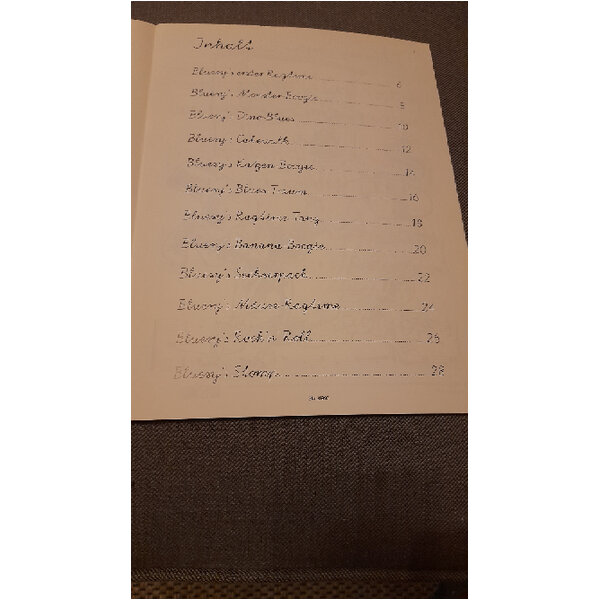 Inhalt
Bluesy's erster Ragtime 6
Bluesy's Monster Boogie 8
Bluesy's Dino Blues 10
Bluesy's Cakewalk 12
Bluesy's Boogie 14
Bluesy's Blues Traum 16
Bluesy's Ragtime Tanz 18
Bluesy's Banana Boogie 20
Bluesy's 22
Bluesy's Ragtime 24
Bluesy's Rock'n Roll 26
Bluesy's 28